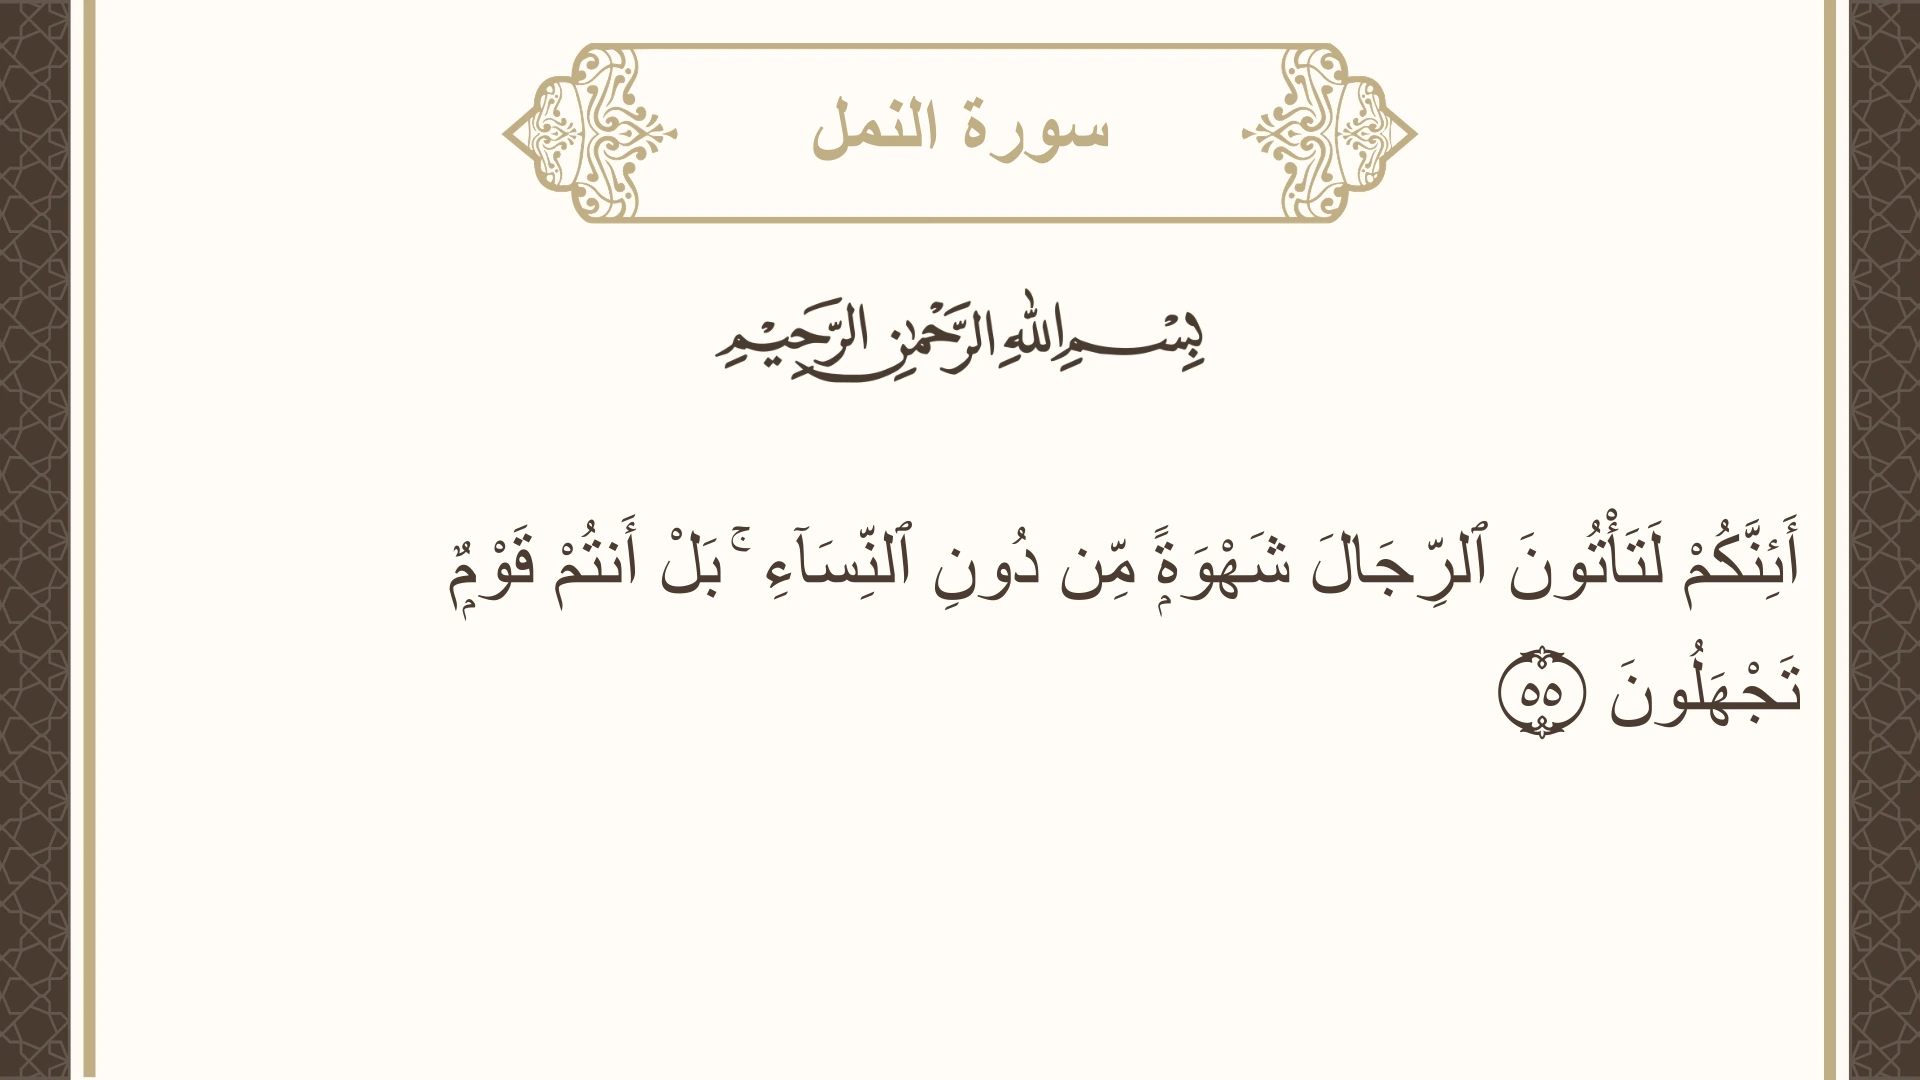 سورة النمل
بِسْمِ اللهِ الرَّحْمٰنِ الرَّحِيْمِ
أَئِنَّكُمْ لَتَأْتُونَ ٱلرِّجَالَ شَهْوَةًۭ مِّن دُونِ ٱلنِّسَآءِ ۚ بَلْ أَنتُمْ قَوْمٌۭ
تَجْهَلُونَ ٥٥